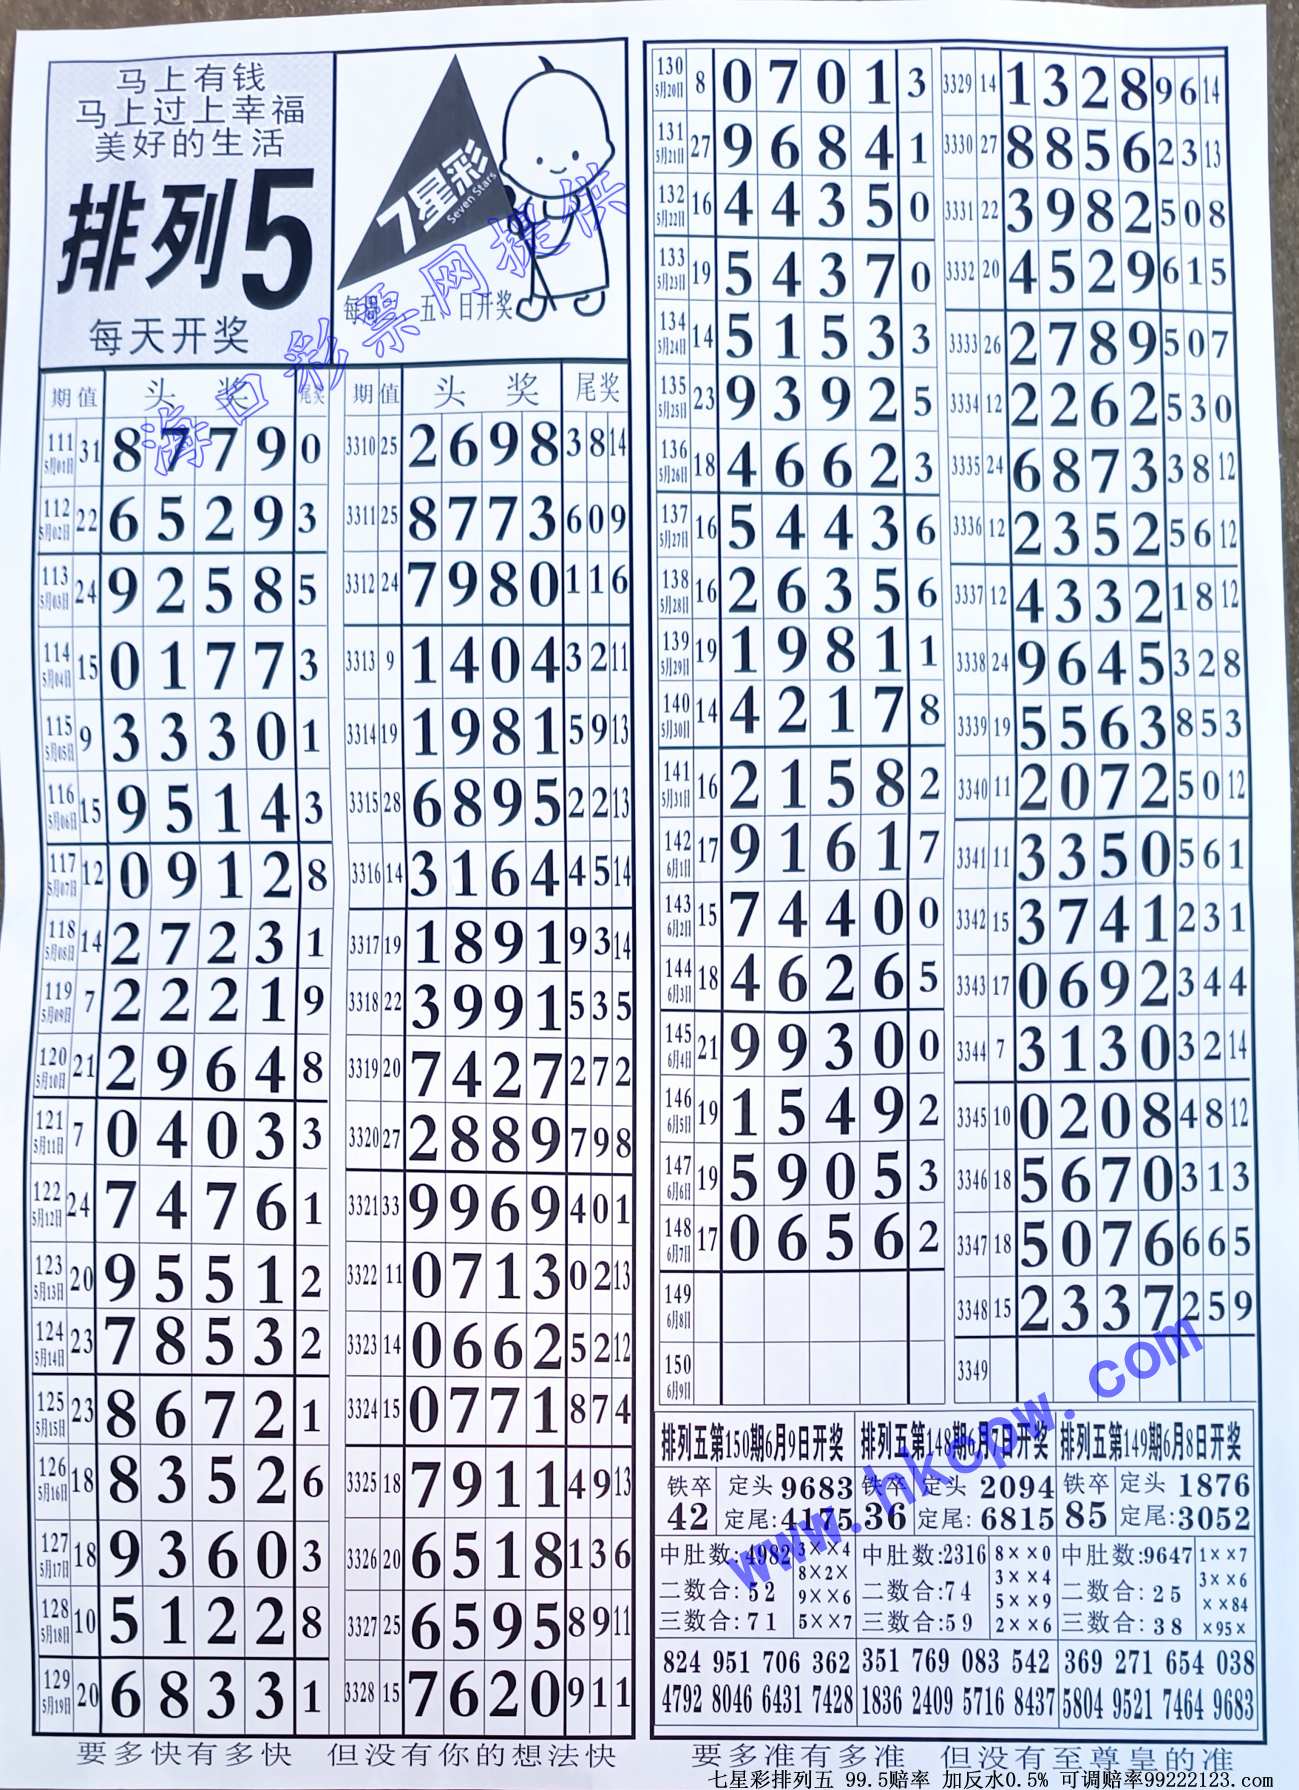 马上有钱
马上过上幸福
美好的生活
排列5
每天开奖
7星彩
Seven Stars
每周 五 日开奖
海口彩票网提供
期 值 头 奖 尾奖
111 5月01日 31 8 7 7 9 0
112 5月02日 22 6 5 2 9 3
113 5月03日 24 9 2 5 8 5
114 5月04日 15 0 1 7 7 3
115 5月05日 9 3 3 3 0 1
116 5月06日 15 9 5 1 4 3
117 5月07日 12 0 9 1 2 8
118 5月08日 14 2 7 2 3 1
119 5月09日 7 2 2 2 1 9
120 5月10日 21 2 9 6 4 8
121 5月11日 7 0 4 0 3 3
122 5月12日 24 7 4 7 6 1
123 5月13日 20 9 5 5 1 2
124 5月14日 23 7 8 5 3 2
125 5月15日 23 8 6 7 2 1
126 5月16日 18 8 3 5 2 6
127 5月17日 18 9 3 6 0 3
128 5月18日 10 5 1 2 2 8
129 5月19日 20 6 8 3 3 1
期 值 头 奖 尾奖
3310 25 2 6 9 8 3 8 14
3311 25 8 7 7 3 6 0 9
3312 24 7 9 8 0 1 1 6
3313 9 1 4 0 4 3 2 11
3314 19 1 9 8 1 5 9 13
3315 28 6 8 9 5 2 2 13
3316 14 3 1 6 4 4 5 14
3317 19 1 8 9 1 9 3 14
3318 22 3 9 9 1 5 3 5
3319 20 7 4 2 7 2 7 2
3320 27 2 8 8 9 7 9 8
3321 33 9 9 6 9 4 0 1
3322 11 0 7 1 3 0 2 13
3323 14 0 6 6 2 5 2 12
3324 15 0 7 7 1 8 7 4
3325 18 7 9 1 1 4 9 13
3326 20 6 5 1 8 1 3 6
3327 25 6 5 9 5 8 9 11
3328 15 7 6 2 0 9 1 1
130 5月20日 8 0 7 0 1 3
131 5月21日 27 9 6 8 4 1
132 5月22日 16 4 4 3 5 0
133 5月23日 19 5 4 3 7 0
134 5月24日 14 5 1 5 3 3
135 5月25日 23 9 3 9 2 5
136 5月26日 18 4 6 6 2 3
137 5月27日 16 5 4 4 3 6
138 5月28日 16 2 6 3 5 6
139 5月29日 19 1 9 8 1 1
140 5月30日 14 4 2 1 7 8
141 5月31日 16 2 1 5 8 2
142 6月1日 17 9 1 6 1 7
143 6月2日 15 7 4 4 0 0
144 6月3日 18 4 6 2 6 5
145 6月4日 21 9 9 3 0 0
146 6月5日 19 1 5 4 9 2
147 6月6日 19 5 9 0 5 3
148 6月7日 17 0 6 5 6 2
149 6月8日
150 6月9日
3329 14 1 3 2 8 9 6 14
3330 27 8 8 5 6 2 3 13
3331 22 3 9 8 2 5 0 8
3332 20 4 5 2 9 6 1 5
3333 26 2 7 8 9 5 0 7
3334 12 2 2 6 2 5 3 0
3335 24 6 8 7 3 3 8 12
3336 12 2 3 5 2 5 6 12
3337 12 4 3 3 2 1 8 12
3338 24 9 6 4 5 3 2 8
3339 19 5 5 6 3 8 5 3
3340 11 2 0 7 2 5 0 12
3341 11 3 3 5 0 5 6 1
3342 15 3 7 4 1 2 3 1
3343 17 0 6 9 2 3 4 4
3344 7 3 1 3 0 3 2 14
3345 10 0 2 0 8 4 8 12
3346 18 5 6 7 0 3 1 3
3347 18 5 0 7 6 6 6 5
3348 15 2 3 3 7 2 5 9
3349
www.hkcpw.com
排列五第150期6月9日开奖
铁卒 42
定头 9683
定尾:4175
中肚数:4982
二数合:52
三数合:71
3××4
8×2×
9××6
5××7
824 951 706 362
4792 8046 6431 7428
排列五第148期6月7日开奖
铁卒 36
定头 2094
定尾:6815
中肚数:2316
二数合:74
三数合:59
8××0
3××4
5××9
2××6
351 769 083 542
1836 2409 5716 8437
排列五第149期6月8日开奖
铁卒 85
定头 1876
定尾:3052
中肚数:9647
二数合:25
三数合:38
1××7
3××6
××84
×95×
369 271 654 038
5804 9521 7464 9683
要多快有多快 但没有你的想法快
要多准有多准 但没有至尊皇的准
七星彩排列五 99.5赔率 加反水0.5% 可调赔率99222123.com